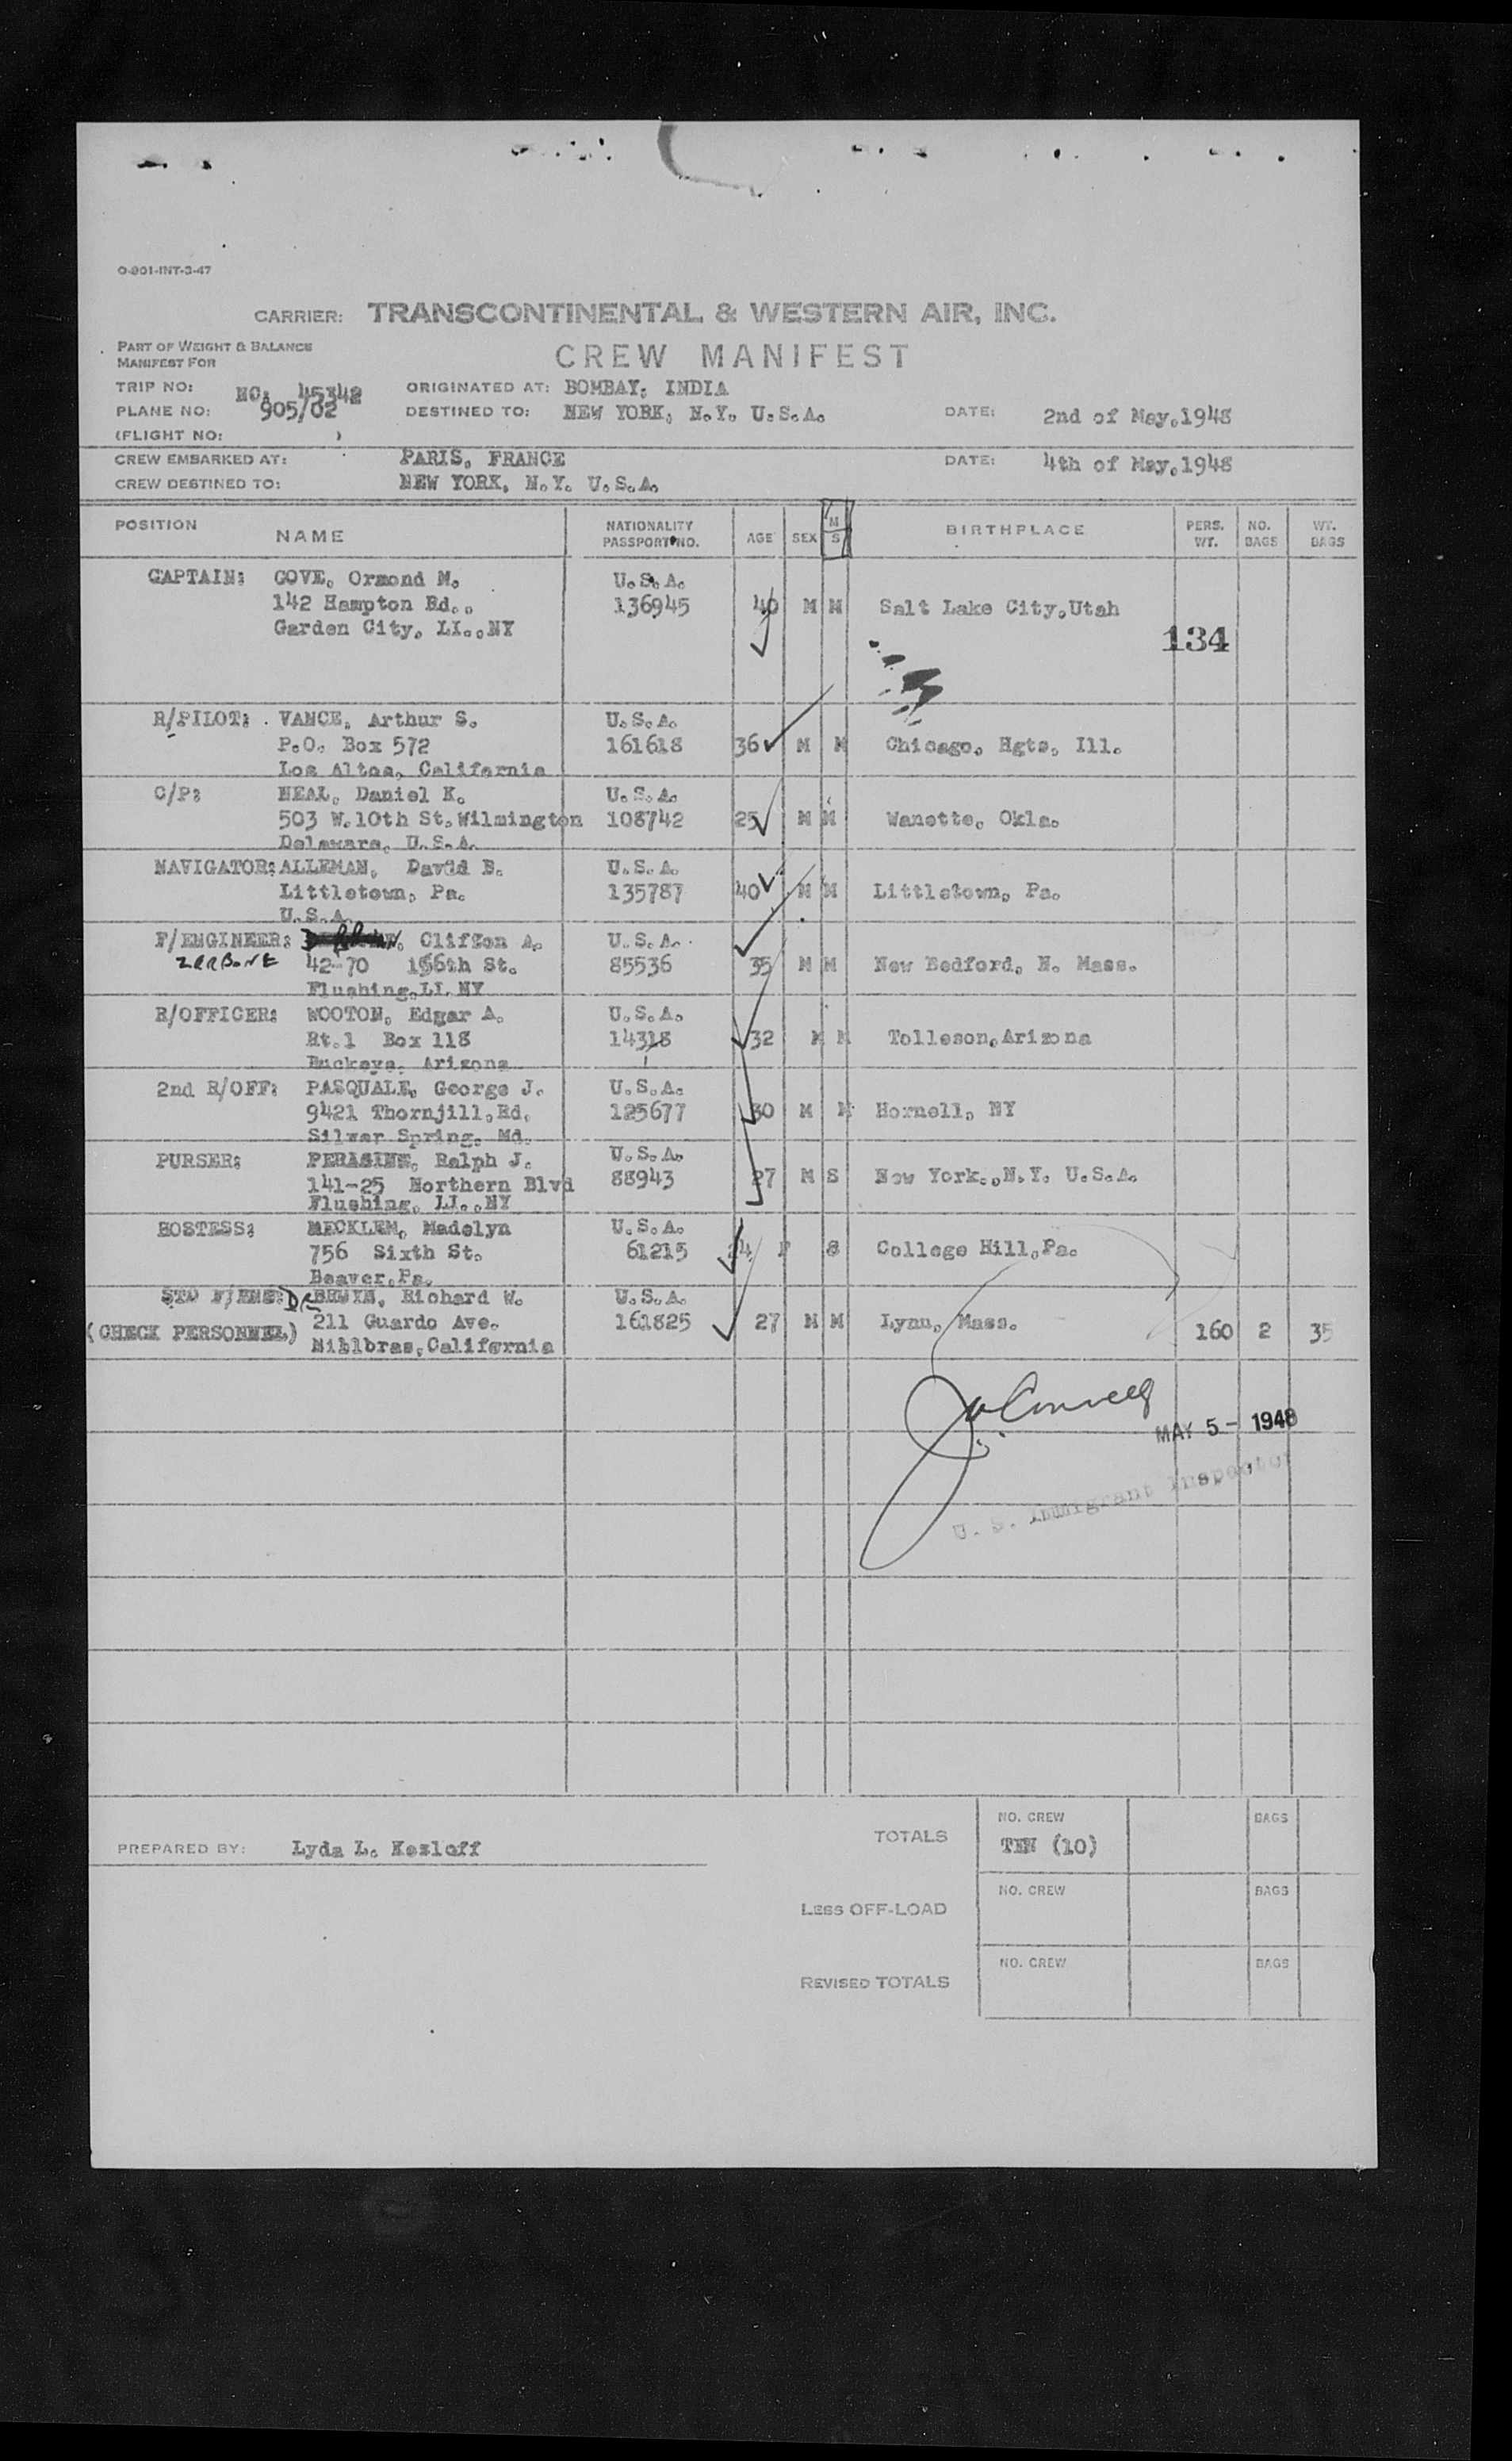 O-801-INT-3-47
CARRIER: TRANSCONTINENTAL & WESTERN AIR, INC.
PART OF WEIGHT & BALANCE
MANIFEST FOR
CREW MANIFEST
TRIP NO: NC. 45342 ORIGINATED AT: BOMBAY, INDIA
PLANE NO: 905/02 DESTINED TO: NEW YORK, N.Y. U.S.A. DATE: 2nd of May,1948
(FLIGHT NO: )
CREW EMBARKED AT: PARIS, FRANCE DATE: 4th of May,1948
CREW DESTINED TO: NEW YORK, N.Y. U.S.A.
POSITION NAME NATIONALITY PASSPORT NO. AGE SEX M S BIRTHPLACE PERS. WT. NO. BAGS WT. BAGS
CAPTAIN: GOVE, Ormond M. U.S.A.
142 Hampton Rd., 136945 40 M M Salt Lake City,Utah
Garden City, LI.,NY
134
R/PILOT: VANCE, Arthur S. U.S.A.
P.O. Box 572 161618 36 M M Chicago, Hgts, Ill.
Los Altos, California
C/P: NEAL, Daniel K. U.S.A.
503 W.10th St.Wilmington 108742 25 M M Wanette, Okla.
Delaware, U.S.A.
NAVIGATOR: ALLEMAN, David B. U.S.A.
Littletown, Pa. 135787 40 M M Littletown, Pa.
U.S.A.
F/ENGINEER: Clifton A. U.S.A.
ZERBONE 42-70 156th St. 85536 35 M M New Bedford, N. Mass.
Flushing,LI NY
R/OFFICER: WOOTON, Edgar A. U.S.A.
Rt.1 Box 118 14318 32 M M Tolleson,Arizona
Buckeye, Arizona
2nd R/OFF: PASQUALE, George J. U.S.A.
9421 Thornjill,Rd. 125677 30 M M Hornell, NY
Silver Spring, Md.
PURSER: PERASINE, Ralph J. U.S.A.
141-25 Northern Blvd 88943 27 M S New York.,N.Y. U.S.A.
Flushing, LI.,NY
HOSTESS: MECKLEM, Madelyn U.S.A.
756 Sixth St. 61215 24 F S College Hill,Pa.
Beaver,Pa.
STD F/ENG: DeBRUYN, Richard W. U.S.A.
(CHECK PERSONNEL) 211 Guardo Ave. 161825 27 M M Lynn, Mass. 160 2 35
Millbrae,California
MAY 5 - 1948
U. S. Immigrant Inspector
PREPARED BY: Lyda L. Kozloff
TOTALS NO. CREW BAGS
TEN (10)
LESS OFF-LOAD NO. CREW BAGS
REVISED TOTALS NO. CREW BAGS